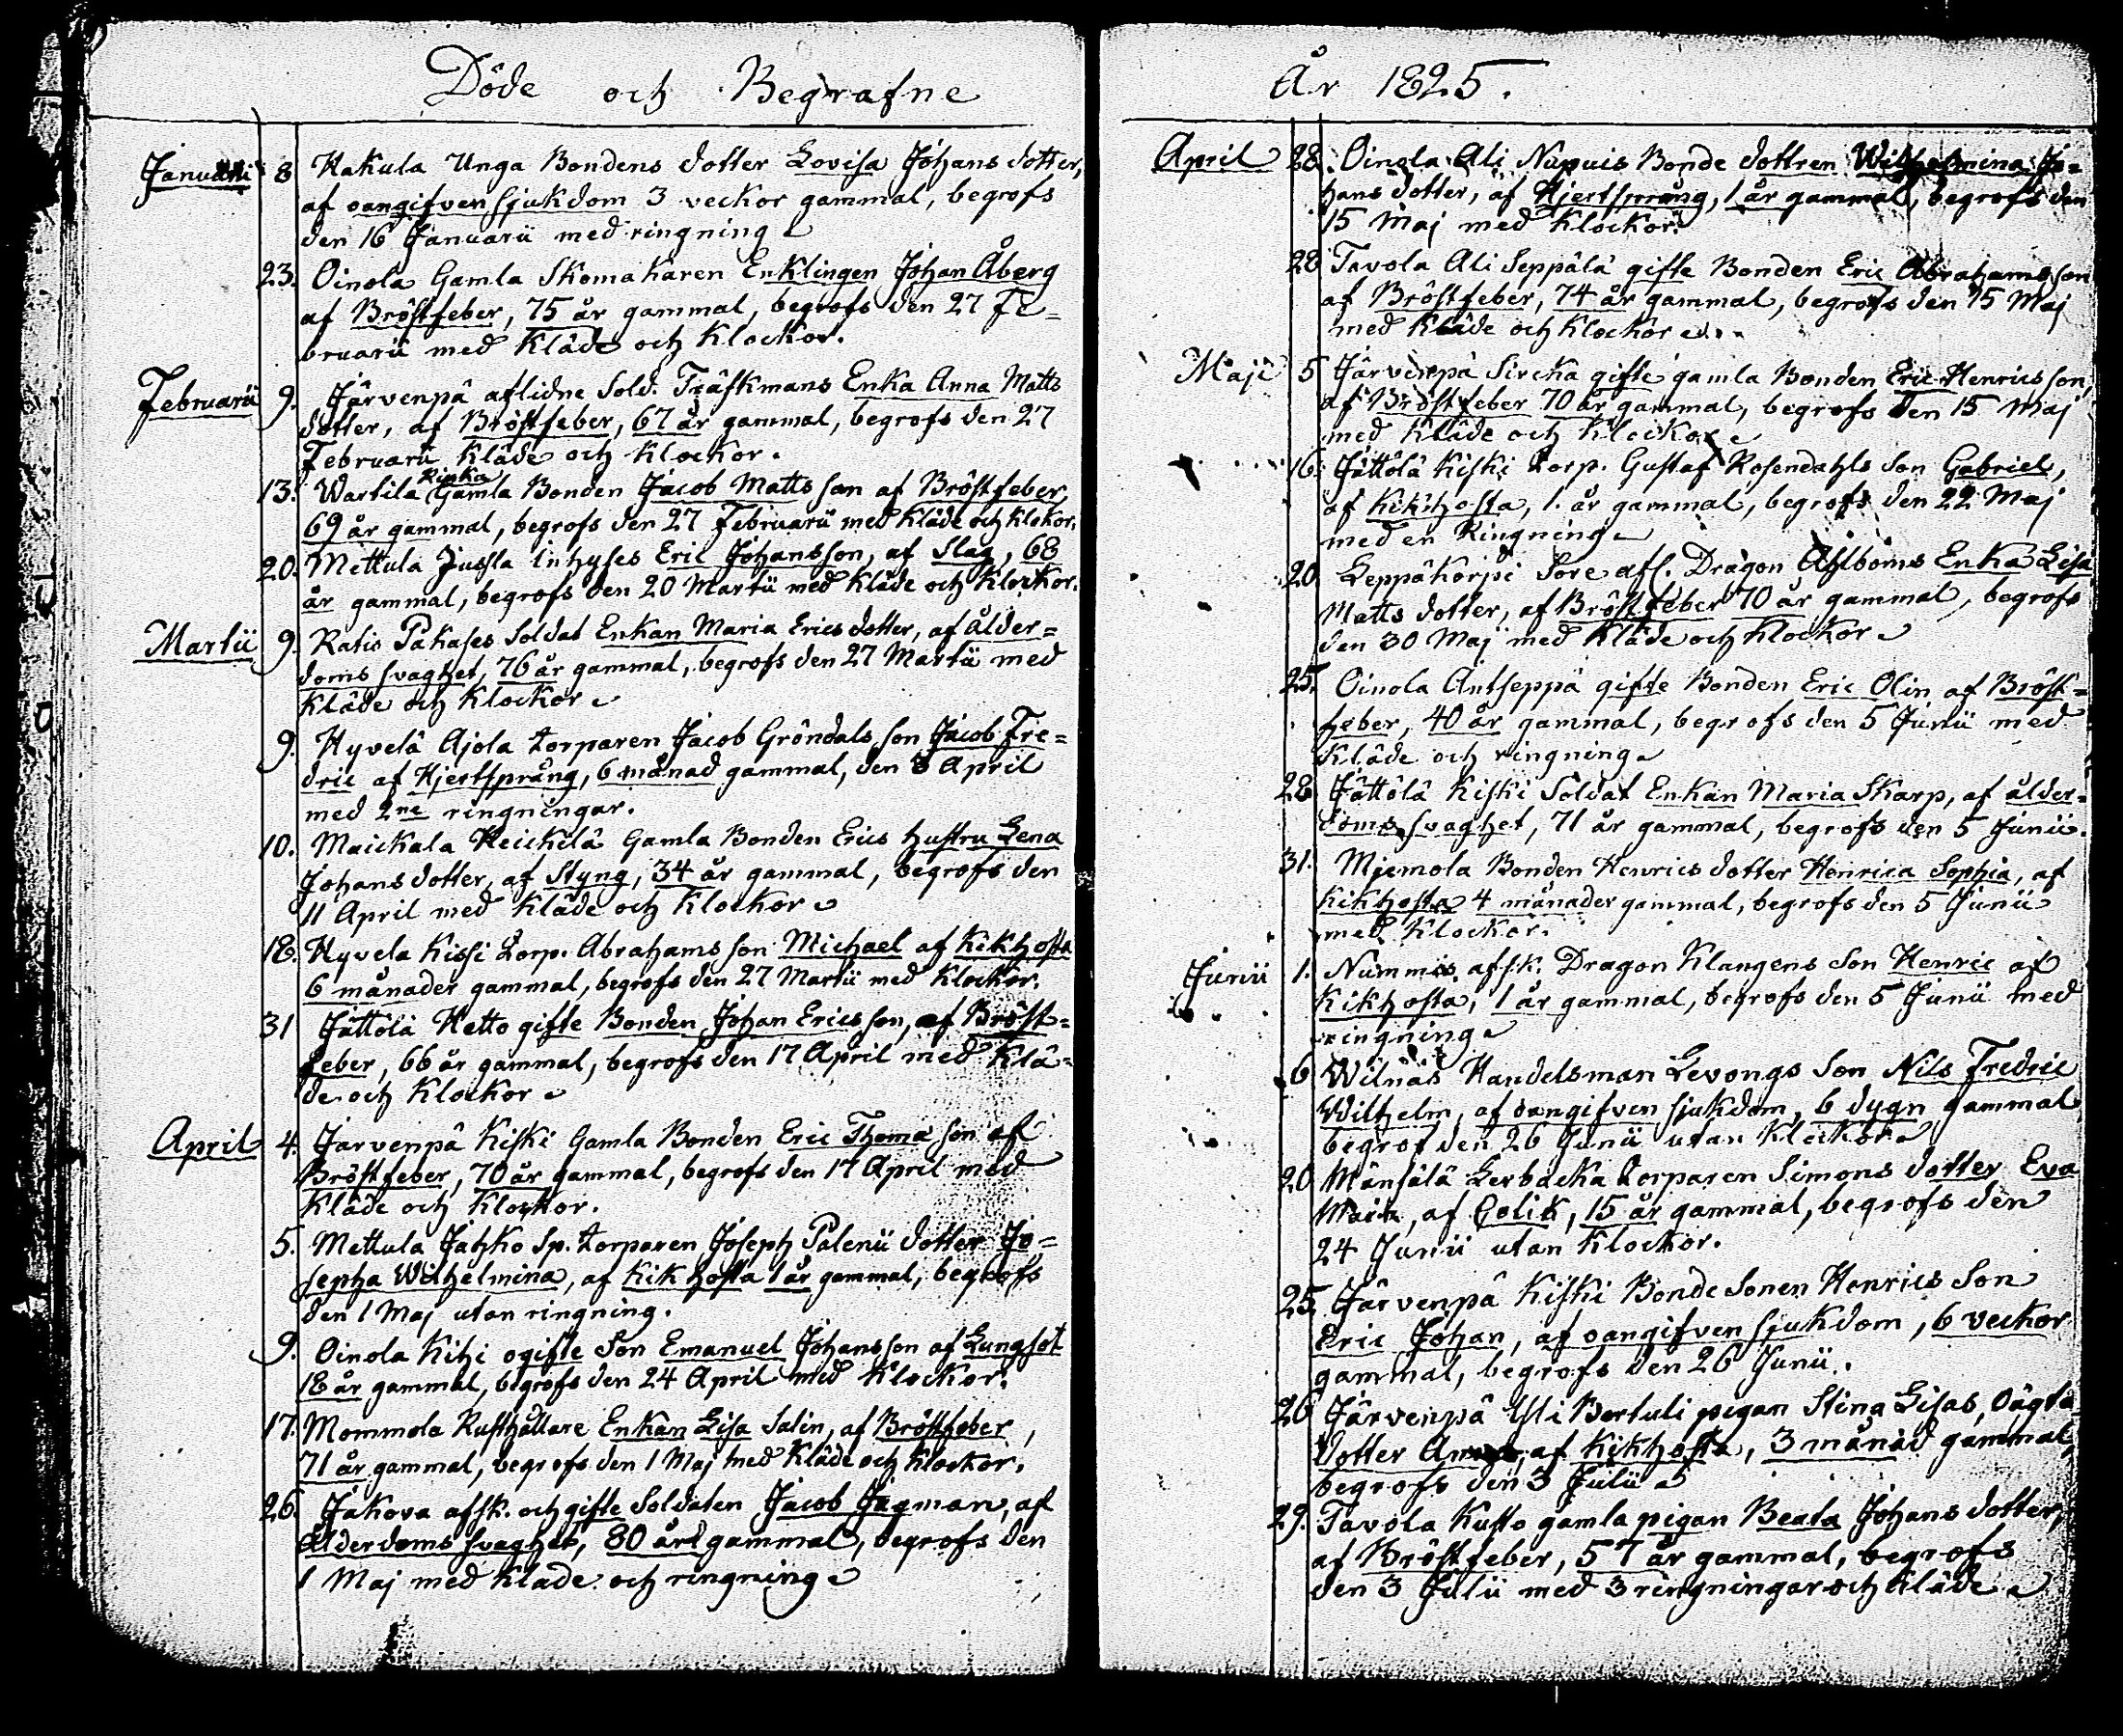 Döde och Begrafne
Januarii 8 Kakula Unga Bondens dotter Lovisa Johans dotter,
af oangifven sjukdom 3 veckor gammal, begrofs
den 16 Januarii med ringning
23. Oinola Gamla Skomakaren Enklingen Johan Åberg
af Bröstfeber, 75 år gammal, begrofs den 27 Fe=
bruarii med Kläde och Klockor.
Februarii 9. Järvenpä aflidne Sold. Träskmans Enka Anna Matts
dotter, af Bröstfeber, 67 år gammal, begrofs den 27
Februarii Kläde och Klockor.
13. Wartila Rinka Gamla Bonden Jacob Matts son af Bröstfeber,
69 år gammal, begrofs den 27 Februarii med Kläde och Klokor.
20. Mettula Jussla inhyses Eric Johansson, af Slag, 68
år gammal, begrofs den 20 Martii med Kläde och Klockor.
Martii 9. Ratis Pakases Soldat Enkan Maria Erics dotter, af ålder=
doms svaghet, 76 år gammal, begrofs den 27 Martii med
Kläde och Klockor
9. Hyvelä Ajola torparen Jacob Gröndals son Jacob Fre=
dric af Hjertsprång, 6 månad gammal, den 8 April
med 2ne ringningar.
10. Maickala Heickilä Gamla Bonden Erics hustru Lena
Johans dotter, af Styng, 34 år gammal, begrofs den
11 April med Kläde och Klockor
18. Hyvela Kissi torp. Abrahams son Michael af Kikhosta
6 månader gammal, begrofs den 27 Martii med Klockor.
31 Jättölä Hetto gifte Bonden Johan Ericsson, af Bröst=
feber, 66 år gammal, begrofs den 17 April med Klä=
de och Klockor
April 4. Jarvenpä Kiski Gamla Bonden Eric Thoma son af
Bröstfeber, 70 år gammal, begrofs den 17 April med
Kläde och Klockor.
5. Mettula Jahko Sp. torparen Joseph Palenii dotter Jo=
sepha Wilhelmina, af Kikhosta 1 år gammal, begrofs
den 1 Maj utan ringning.
9. Oinola Kihi ogifte Son Emanuel Johansson af Lungsot
18 år gammal, begrofs den 24 April med Klockor.
17. Mommola Rusthållare Enkan Lisa Salin, af Bröstfeber,
71 år gammal, begrofs den 1 Maj med Kläde och Klockor.
26. Jakova afsk. och gifte Soldaten Jacob Jagman, af
Ålderdoms svaghet, 80 år gammal, begrofs den
1 Maj med Klade och ringning
År 1825.
April 28. Oinola Ali Nupuis Bonde dottren Wilhelmina Jo=
hans dotter, af Hjertsprång, 1 år gammal, begrofs den
15 Maj med Klockor.
28 Tavola Ali Seppälä gifte Bonden Eric Abrahamsson
af Bröstfeber, 74 år gammal, begrofs den 15 Maj
med Kläde och Klockor
Maji 5 Järvenpä Sircka gifte gamla Bonden Eric Henricsson,
af Bröstfeber 70 år gammal, begrofs den 15 Maj
med Kläde och Klockor
16. Jättölä Kiski torp. Gustaf Rosendahls son Gabriel,
af Kikhosta, 1. år gammal, begrofs den 22 Maj
med en Ringning
20 Leppäkorpi Sore afl. Dragon Ahlboms Enka Lisa
Matts dotter, af Bröstfeber 70 år gammal, begrofs
den 30 Maj med Kläde och Klockor
25. Oinola Antseppä gifte Bonden Eric Olin af Bröst=
feber, 40 år gammal, begrofs den 5 Junii med
Kläde och ringning
28 Jättölä Kiski Soldat Enkan Maria Skarp, af ålder=
doms svaghet, 71 år gammal, begrofs den 5 Junii.
31. Mjemola Bonden Henrics dotter Henrica Sophia, af
Kikhosta 4 månader gammal, begrofs den 5 Junii
med Klockor.
Junii 1. Nummis afsk. Dragon Klangens Son Henric af
Kikhosta, 1 år gammal, begrofs den 5 Junii med
ringning
6 Wilnäs Handelsman Levongs Son Nils Fredric
Wilhelm, af oangifven sjukdom, 6 dygn gammal,
begrof den 26 Junii utan Klockor
20 Mänsälä Lerbacka torparen Simons dotter Eva
Maia, af Colik, 15 år gammal, begrofs den
24 Junii utan Klockor.
25. Järvenpä Kiski Bonde Sonen Henrics Son
Eric Johan, af oangifven sjukdom, 6 veckor
gammal, begrofs den 26 Junii.
26 Järvenpä Yli Bertuli pigan Stina Lisas, Oägta
dotter af Kikhosta, 3 månad gammal,
begrofs den 3 Julii
29. Tavola Kusto gamla pigan Beata Johans dotter,
af Bröstfeber, 57 år gammal, begrofs
den 3 Julii med 3 ringningar och Kläde